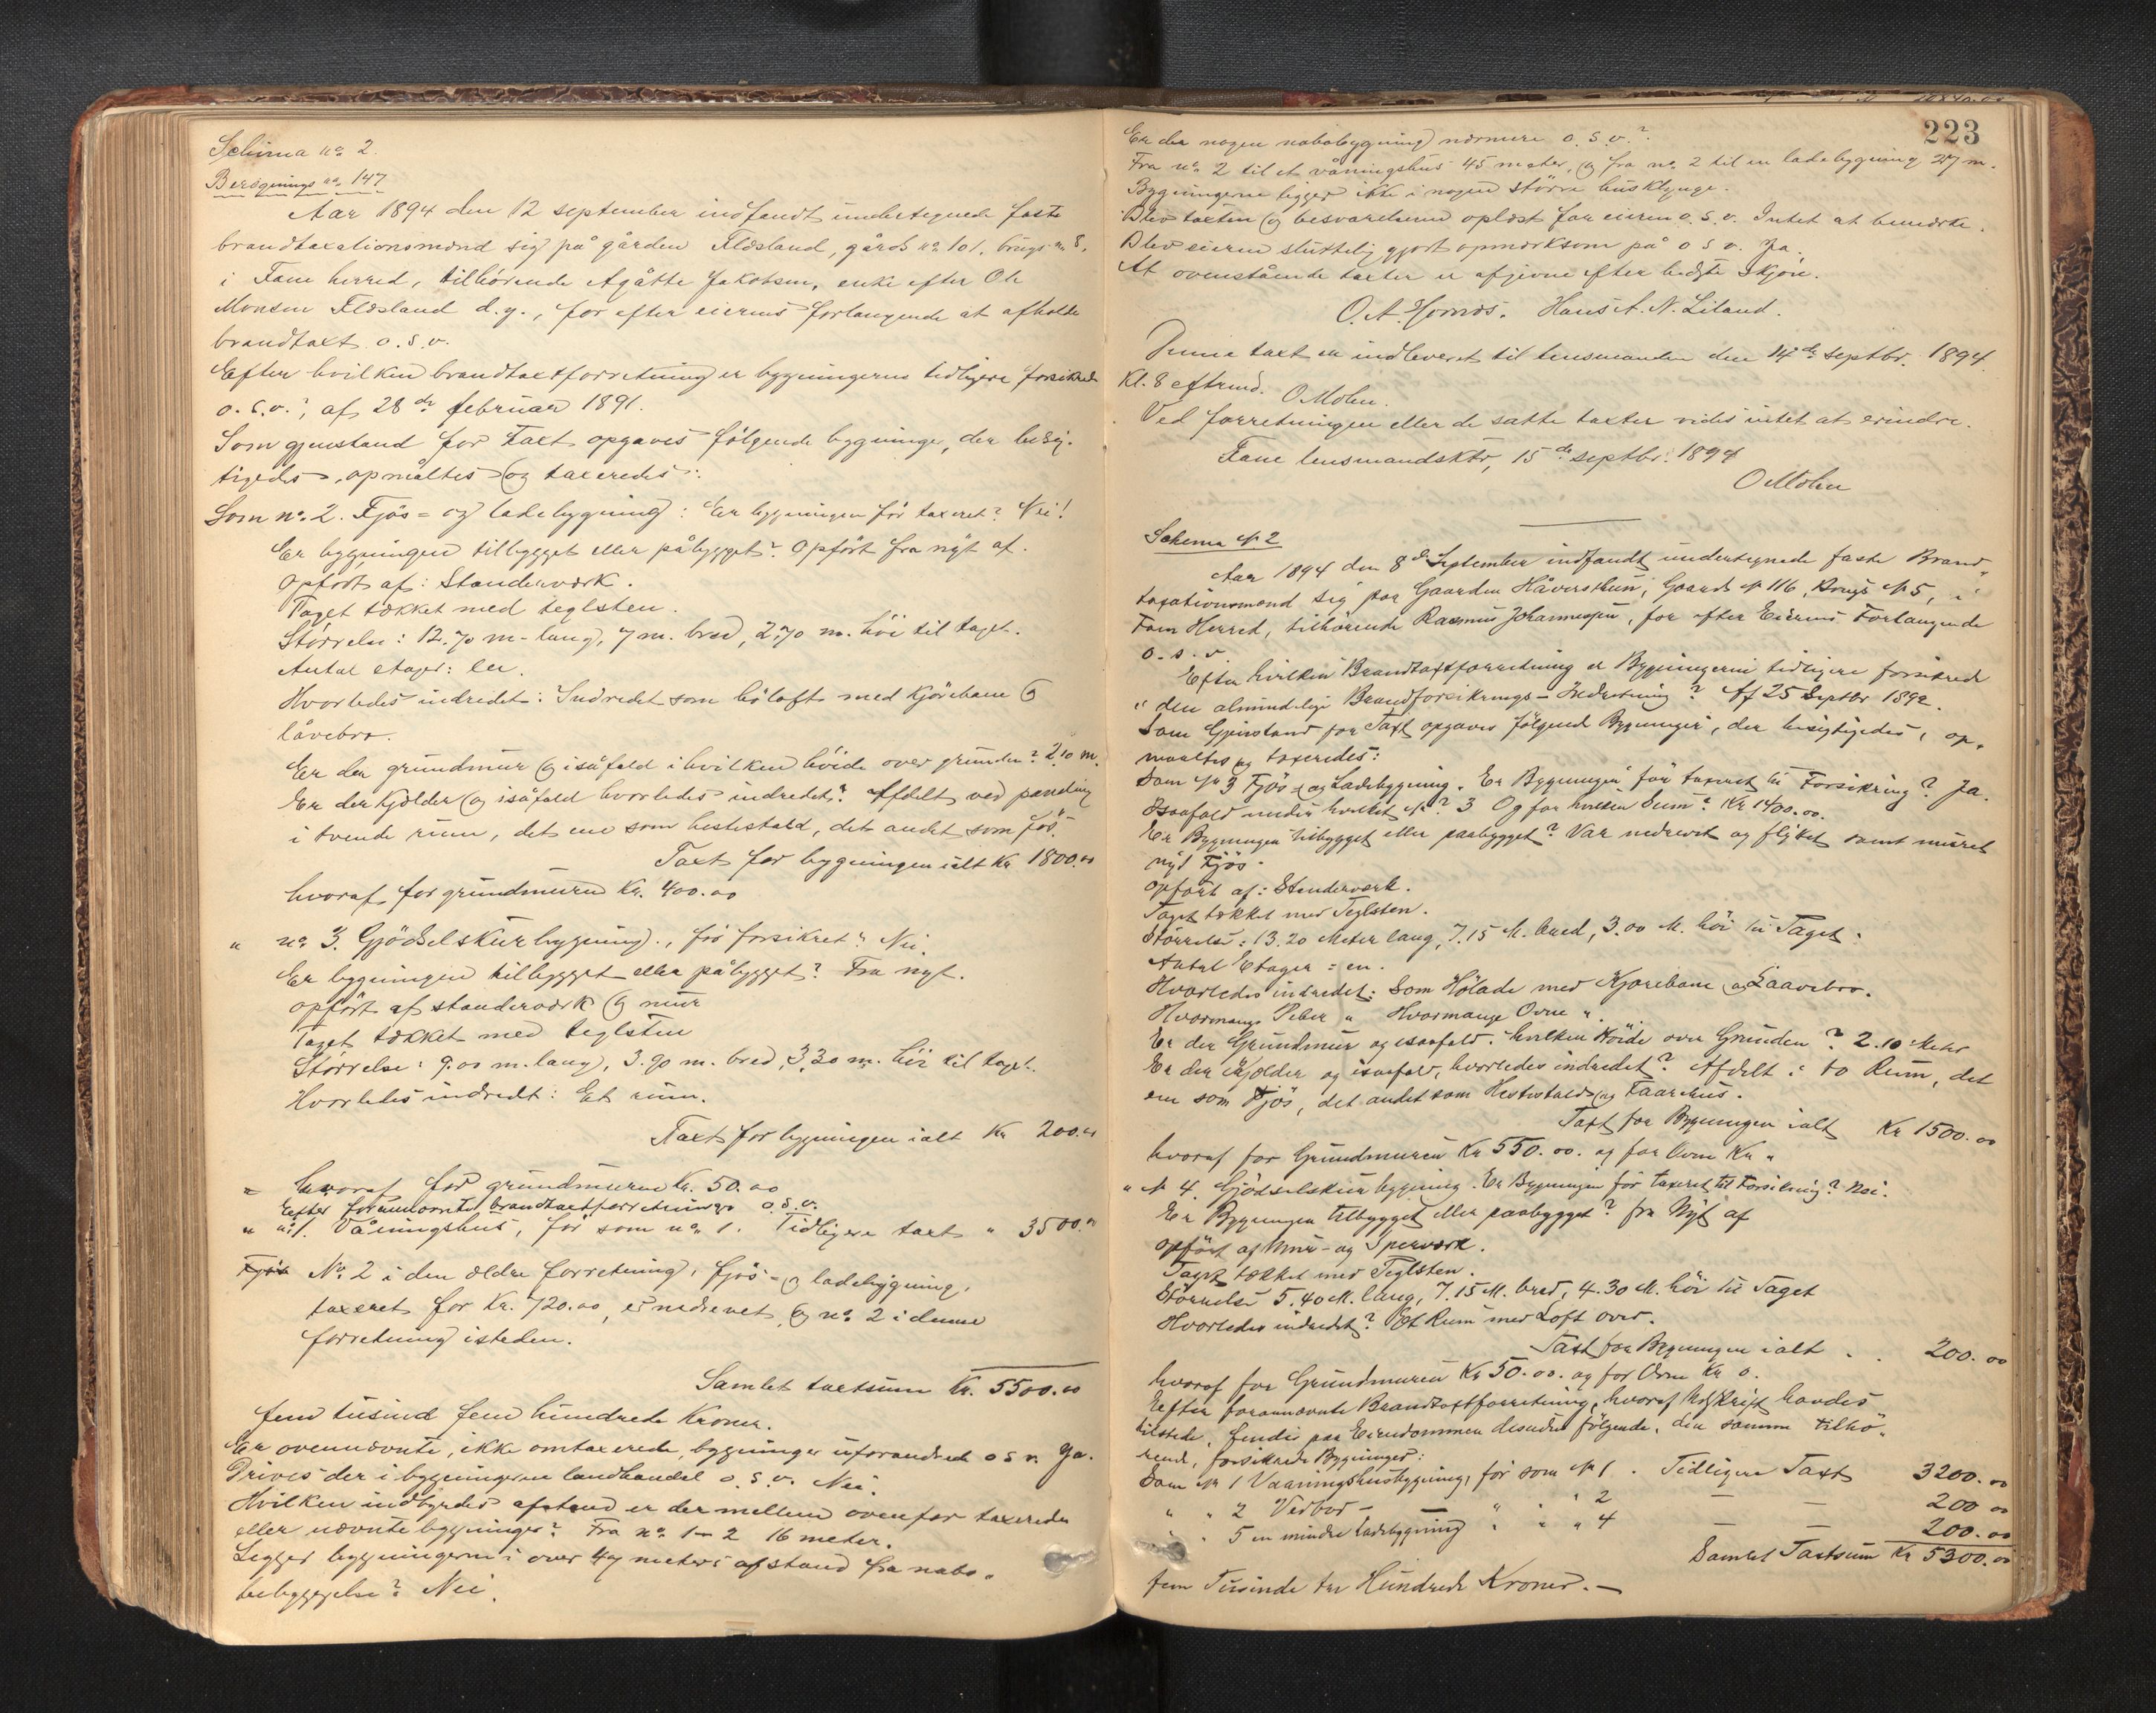 Schema no. 2.
Besigtnings no. 147
Aar 1894 den 12 september indfandt undertegnede faste
brandtaxationsmænd sig på gården Flesland, gårds no. 101, brugs no. 8,
i Fane herred, tilhørende Agåtte Jakobsen, enke efter Ole
Monsen Flesland d.y., for efter eierens forlangende at afholde
brandtaxt o.s.v.
Efter hvilken brandtaxtforretning er bygningerne tidligere forsikrede
o.s.v.?, af 28de februar 1891.
Som gjenstand for Taxt opgaves følgende bygninger, der besig-
tigedes, opmåltes og taxeredes:
Som no. 2. Fjøs- og ladebygning: Er bygningen før taxeret? Nei!
Er bygningen tilbygget eller påbygget? Opført fra nyt af.
Opført af: Standerværk.
Taget tækket med teglsten.
Størrelse: 12.70 m. lang, 7 m. bred, 2,70 m. høi til taget.
Antal etager: en.
Hvorledes indredet: Indredet som høloft med kjørebane og
låvebro.
Er der grundmur og isåfald i hvilken høide over grunden? 2,10 m.
Er der Kjelder og isåfald hvorledes indredet? Afdelt ved paneling
i tvende rum, det ene som hestestald, det andet som fjøs.
Taxt for bygningen ialt Kr 1800.00
hvoraf for grundmuren Kr. 400.00
" no. 3. Gjødselskurbygning., før forsikret? Nei.
Er bygningen tilbygget eller påbygget? Fra nyt.
Opført af standerværk og mur
Taget tækket med teglsten
Størrelse: 9.00 m. lang, 3.90 m. bred, 3,30 m. høi til taget.
Hvorledes indredt: Et rum.
Taxt for bygningen ialt Kr 200.00
" hvoraf for grundmuren Kr. 50.00
Efter forannævnte brandtaxtforretnings o.s.v.
" no. 1. Våningshus, før som no. 1. Tidligere taxt " 3500.00
Fjøs No. 2 i den ældre forretning, fjøs- og ladebygning,
taxeret for Kr. 720.00, er nedrevet, og no. 2 i denne
forretning isteden.
Samlet taxtsum Kr. 5500.00
fem tusind fem hundrede Kroner.
Er ovennævnte, ikke omtaxerede, bygninger uforandrede o s v. Ja.
Drives der i bygningerne landhandel o.s.v. Nei.
Hvilken indbyrdes afstand er der mellem ovenfor taxerede
eller nævnte bygninger? Fra no. 1–2 16 meter.
Ligger bygningerne i over 47 meters afstand fra nabo-
bebyggelse? Nei.
223
Er der nogen nabobygning nærmere o.s.v.?
Fra no. 2 til et våningshus 45 meter, og fra no. 2 til en ladebygning 27 m.
Bygningerne ligger ikke i nogen større husklynge.
Blev taxten og besvarelserne oplæst for eieren o.s.v. Intet at bemærke.
Blev eieren sluttelig gjort opmærksom på o s v. Ja.
At ovenstående taxter er afgivne efter bedste Skjøn.
O. A. Hornæs. Hans A. N. Liland.
Denne taxt er indleveret til lensmanden den 14de septbr. 1894.
Kl. 8 eftmd. O Molen.
Ved forretningen eller de satte taxter vides intet at erindre.
Fane lensmandsktr, 15de septbr. 1894
O Molen
Schema No 2
Aar 1894 den 8de September indfandt undertegnede faste Brand-
taxationsmænd sig paa Gaarden Håverstuen, Gaards No 116, Brugs No 5, i
Fane Herred, tilhørende Rasmus Johannessen, for efter Eierens Forlangende
o.s.v
Efter hvilken Brandtaxtforretning er Bygningerne tidligere forsikrede
i den almindelige Brandforsikrings-Indretning? Af 25 Septbr 1892.
Som Gjenstand for Taxt opgaves følgende Bygninger, der besigtigedes, op-
maaltes og taxeredes:
Som No 3 Fjøs- og Ladebygning. Er Bygningen før taxeret til Forsikring? Ja.
Isaafald under hvilket No? 3 Og for hvilken Sum? Kr 1400.00.
Er Bygningen tilbygget eller paabygget? Var nedrevet og flyttet samt muret
nyt Fjøs.
Opført af: Stenderværk.
Taget tækket med Teglsten.
Størrelse: 13.20 Meter lang, 7.15 M. bred, 3.00 M. høi til Taget.
Antal Etager: en.
Hvorledes indredet: Som Hølade med Kjørebane og Laavebro.
Hvormange Piber " Hvormange Ovne ".
Er der Grundmur og isaafald hvilken Høide over Grunden? 2.10 Meter
Er der Kjælder og isaafald, hvorledes indredet? Afdelt i to Rum, det
ene som Fjøs, det andet som Hestestald og Faarehus.
Taxt for Bygningen ialt Kr 1500.00
hvoraf for Grundmuren Kr 550.00. og for Ovne Kr "
" No 4. Gjødselskurbygning. Er Bygningen før taxeret til Forsikring? Nei.
Er Bygningen tilbygget eller paabygget? fra Nyt af
Opført af Mur- og Sperværk.
Taget tækket med Teglsten.
Størrelse 5.40 M. lang, 7.15 M. bred, 4.30 M. høi til Taget
Hvorledes indredet? Et Rum med Loft over.
Taxt for Bygningen ialt . . 200.00
hvoraf for Grundmuren Kr 50.00. og for Ovne Kr 0.
Efter forannævnte Brandtaxtforretning, hvoraf Udskrift havdes
tilstede, findes paa Eiendommen desuden følgende, den samme tilhø-
rende, forsikrede Bygninger:
Som No 1 Vaaningshusbygning, før som No 1. Tidligere Taxt 3200.00
" " 2 Vedbod — — " " " 2 — — 200 00
" " 5 en mindre Ladebygning " " " 4 — — 200.00
Samlet Taxtsum Kr 5300.00
fem Tusinde tre Hundrede Kroner.—